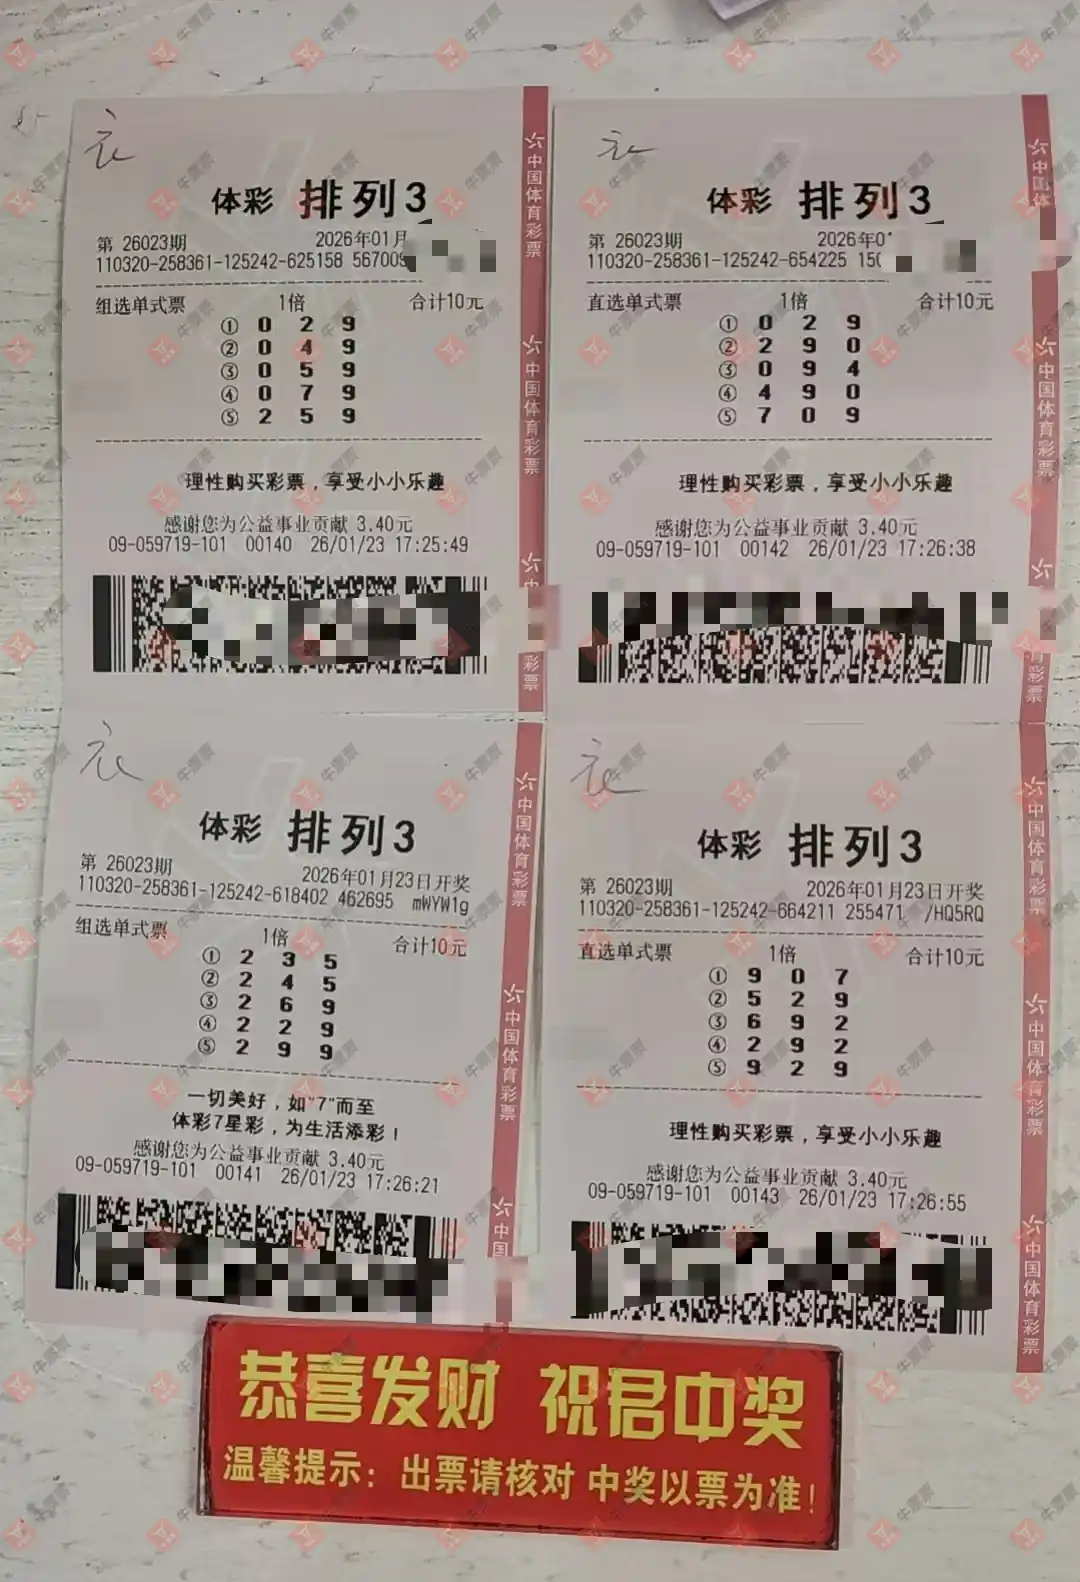 体彩 排列3
第 26023期 2026年01月
110320-258361-125242-625158 567009
组选单式票 1倍 合计10元
① 0 2 9
② 0 4 9
③ 0 5 9
④ 0 7 9
⑤ 2 5 9
理性购买彩票，享受小小乐趣
感谢您为公益事业贡献 3.40元
09-059719-101 00140 26/01/23 17:25:49
中国体育彩票
中国体育彩票
中
彩票
体彩 排列3
第 26023期 2026年0
110320-258361-125242-654225 150
直选单式票 1倍 合计10元
① 0 2 9
② 2 9 0
③ 0 9 4
④ 4 9 0
⑤ 7 0 9
理性购买彩票，享受小小乐趣
感谢您为公益事业贡献 3.40元
09-059719-101 00142 26/01/23 17:26:38
中国体
中国体育彩票
育彩票
体彩 排列3
第 26023期 2026年01月23日开奖
110320-258361-125242-618402 462695 mWYW1g
组选单式票 1倍 合计10元
① 2 3 5
② 2 4 5
③ 2 6 9
④ 2 2 9
⑤ 2 9 9
一切美好，如"7"而至
体彩7星彩，为生活添彩！
感谢您为公益事业贡献 3.40元
09-059719-101 00141 26/01/23 17:26:21
中国体育彩票
中国体育彩票
中国
体彩 排列3
第 26023期 2026年01月23日开奖
110320-258361-125242-664211 255471 /HQ5RQ
直选单式票 1倍 合计10元
① 9 0 7
② 5 2 9
③ 6 9 2
④ 2 9 2
⑤ 9 2 9
理性购买彩票，享受小小乐趣
感谢您为公益事业贡献 3.40元
09-059719-101 00143 26/01/23 17:26:55
中国体育彩票
中国体育彩票
中国体育彩票
恭喜发财 祝君中奖
温馨提示：出票请核对 中奖以票为准！
牛票票